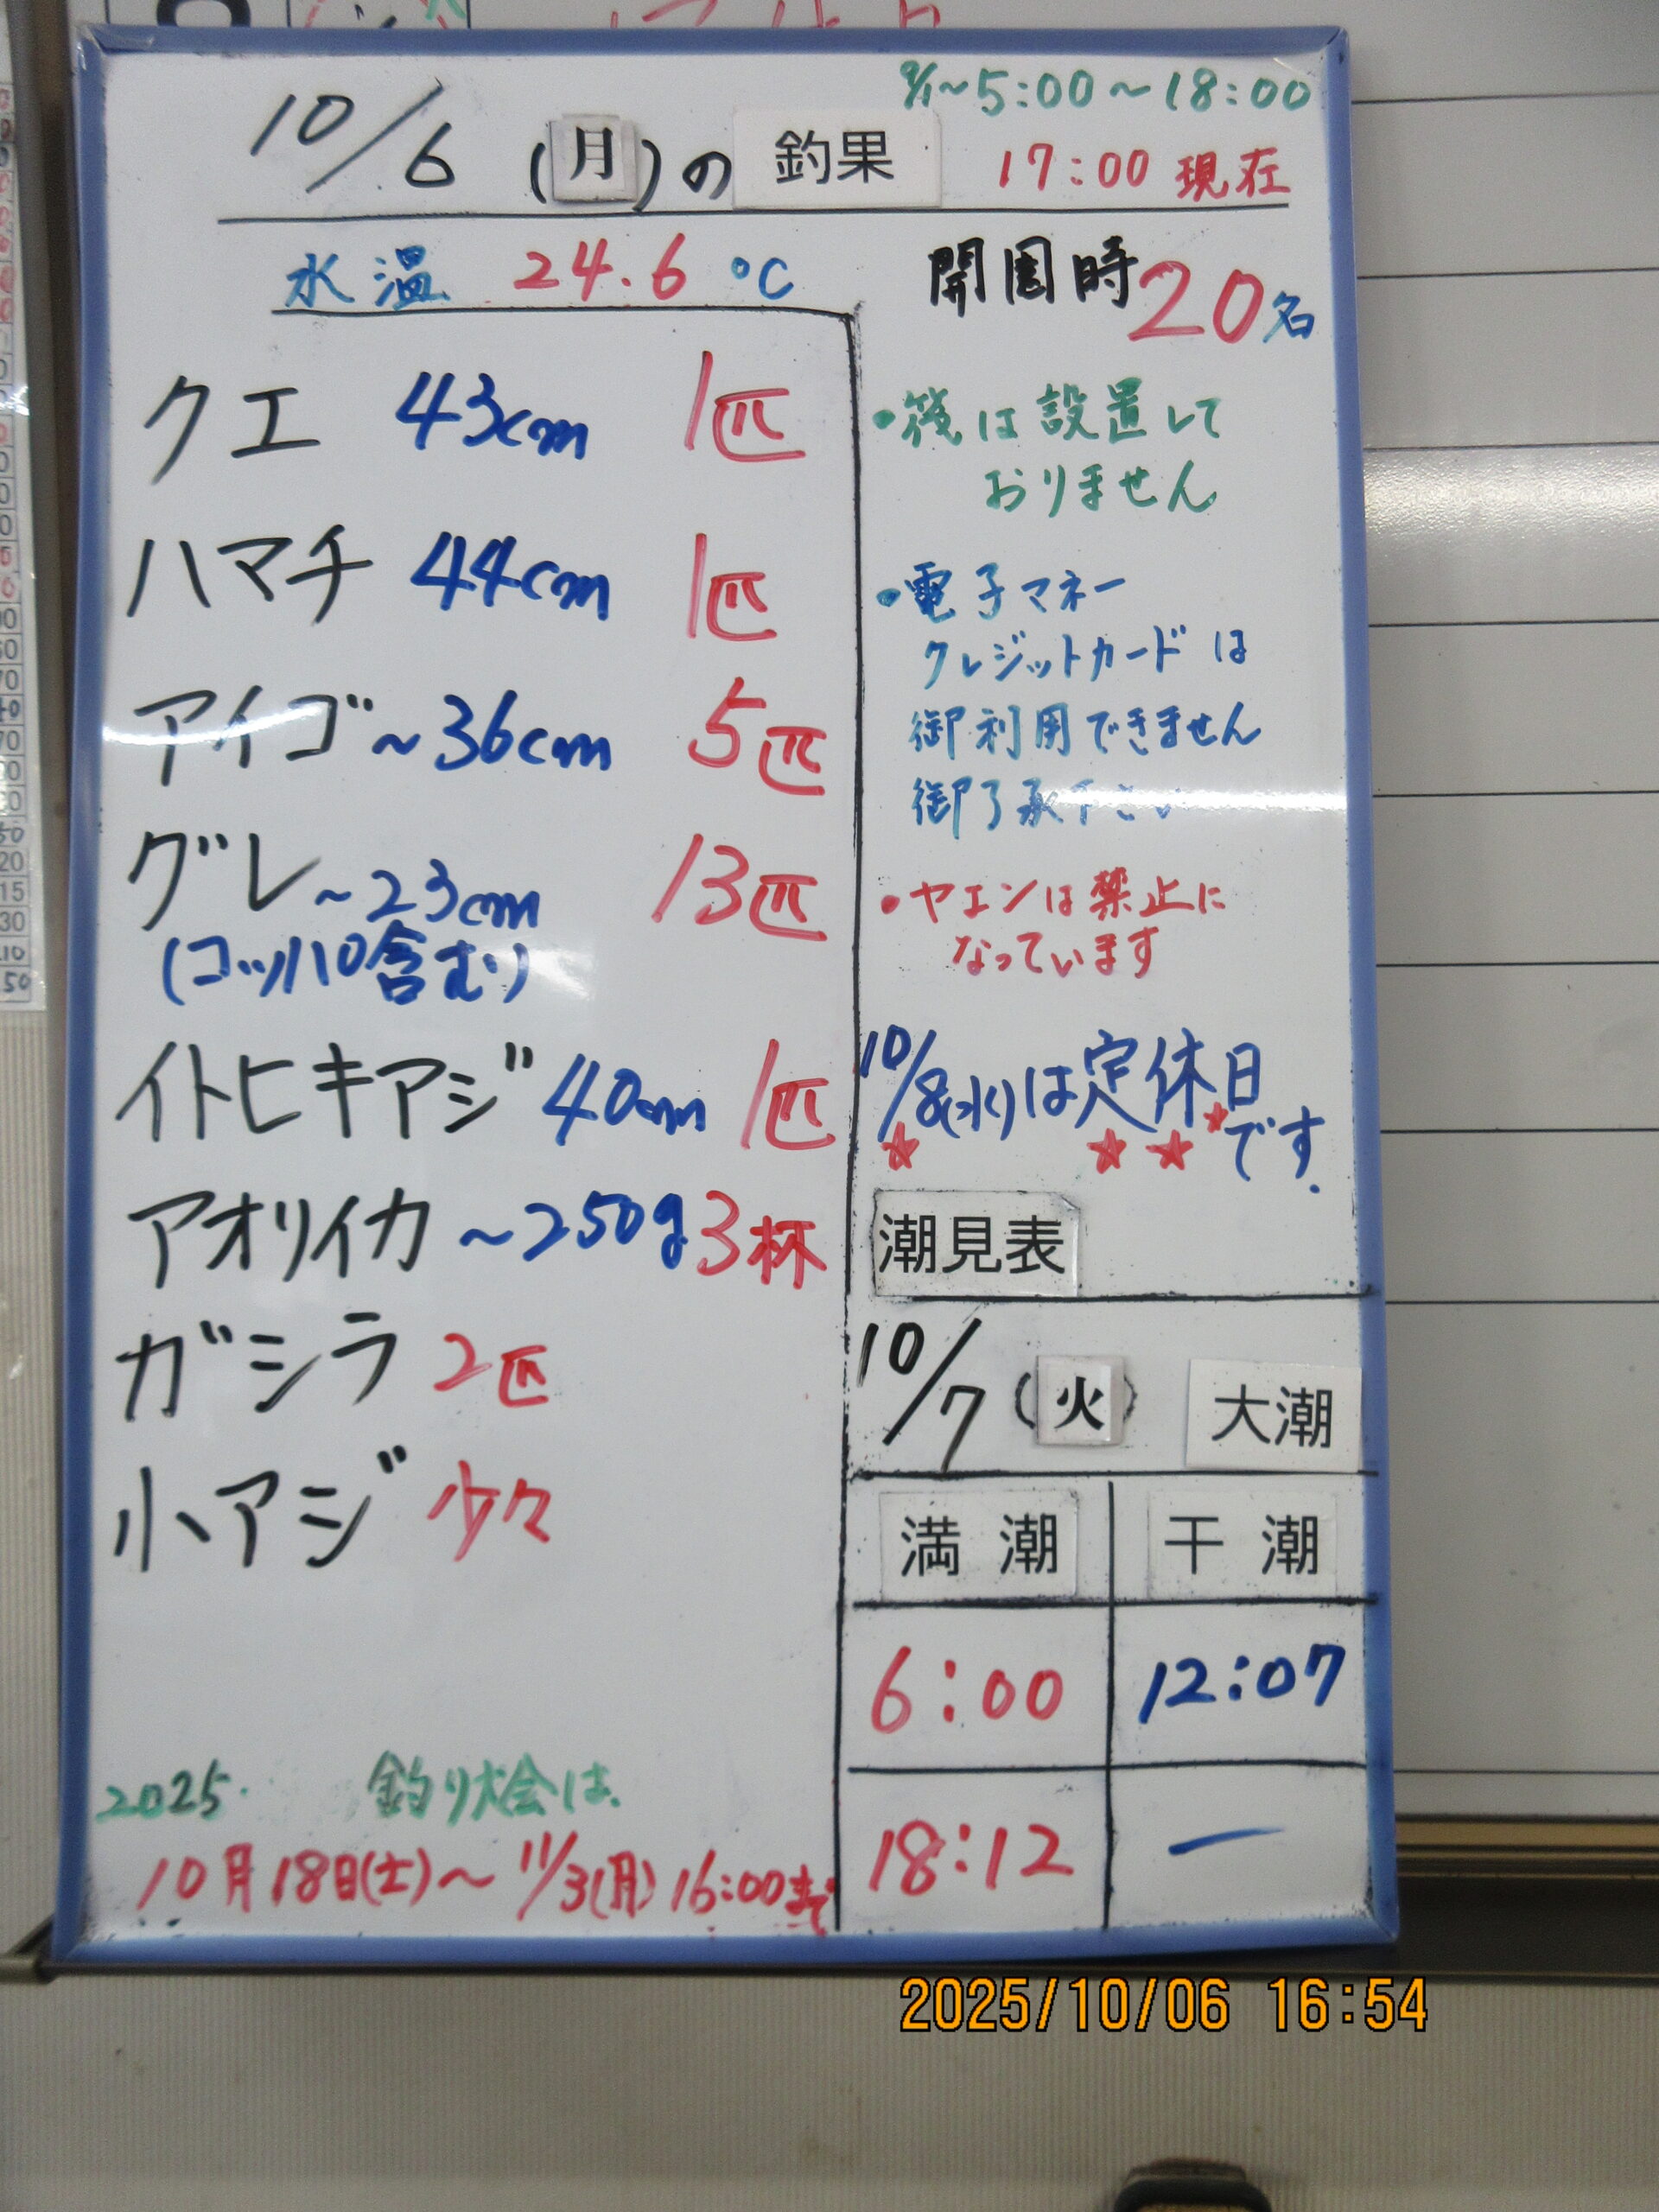 9/1~5:00~18:00
10/6 (月)の 釣果
17:00 現在
水温 24.6 ℃
開園時20名
クエ 43cm 1匹
ハマチ 44cm 1匹
アイゴ~36cm 5匹
グレ~23cm 13匹
(コッパ含む)
イトヒキアジ 40cm 1匹
アオリイカ ~250g 3杯
ガシラ 2匹
小アジ 少々
2025. 釣り大会は
10月18日(土)~11/3(月)16:00まで
・筏は設置して
おりません
・電子マネー
クレジットカードは
御利用できません
御了承下さい
・ヤエンは禁止に
なっています
10/8(水)は定休日
です.
潮見表
10/7 (火) 大潮
満潮 干潮
6:00 12:07
18:12 —
2025/10/06 16:54